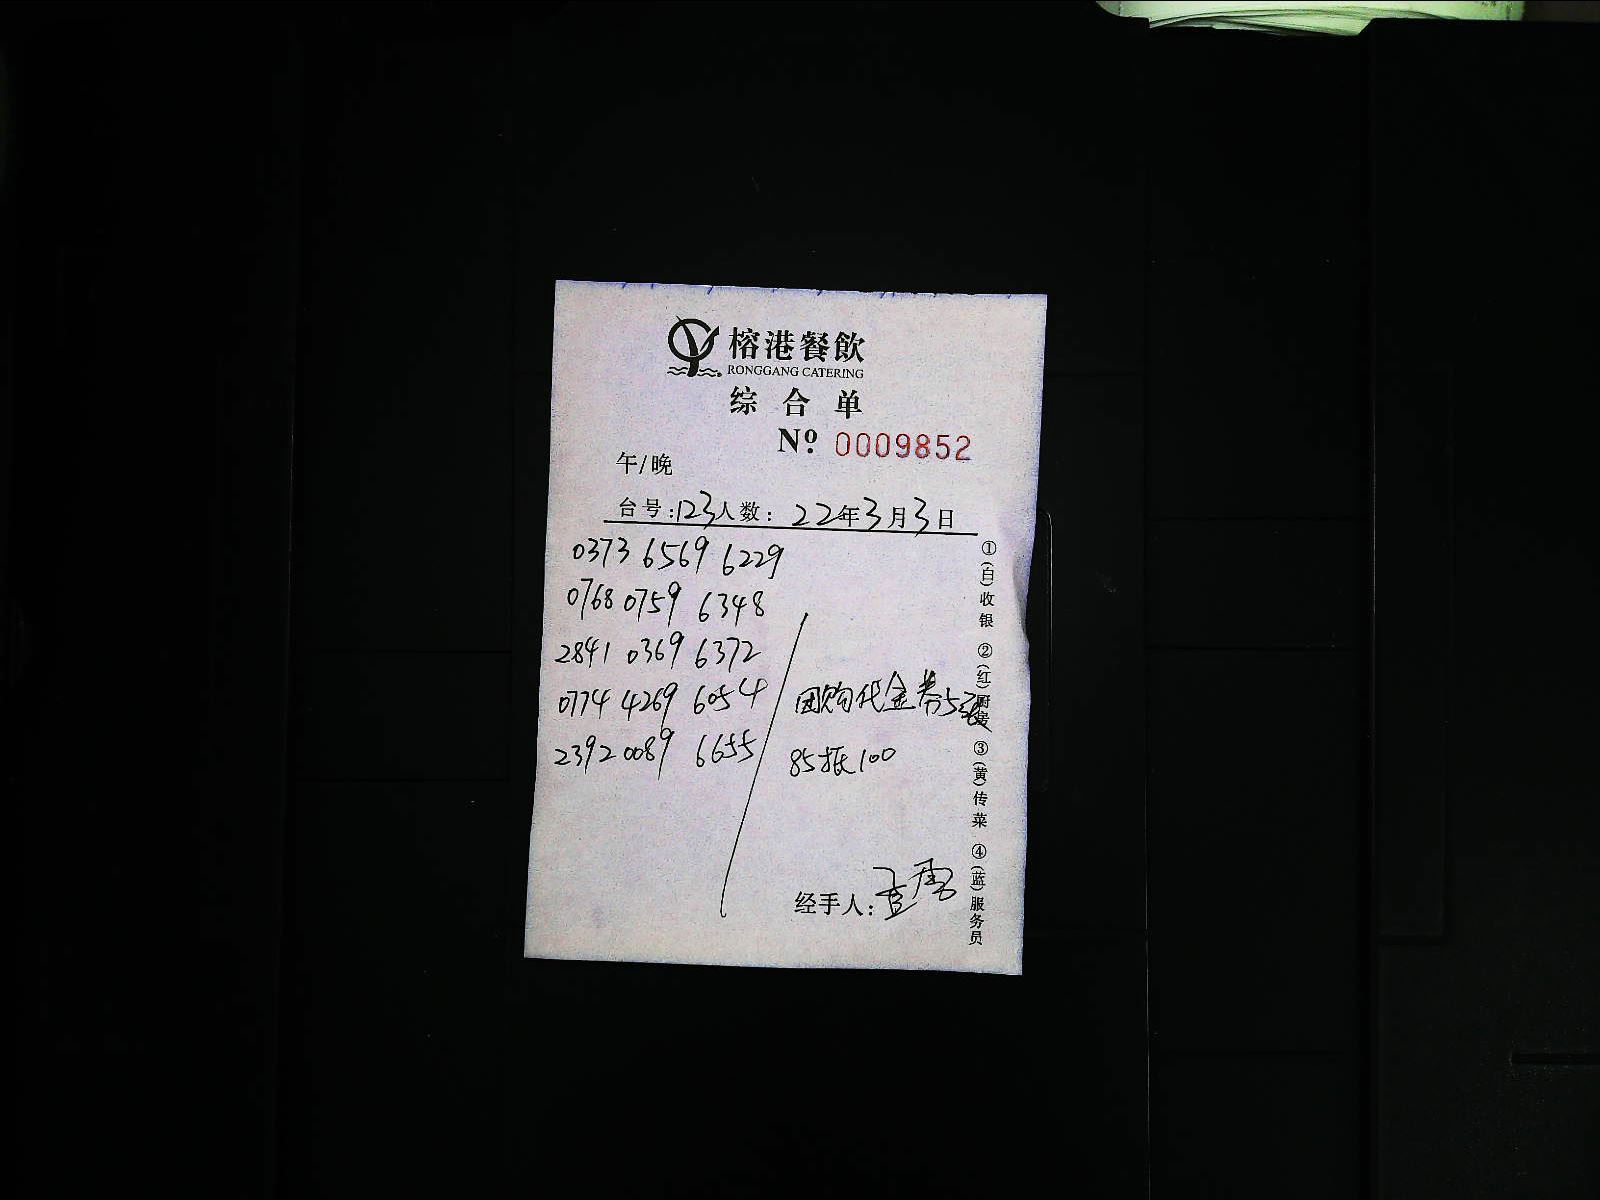 榕港餐飲
RONGGANG CATERING
综合单
Nº 0009852
午/晚
台号:123人数: 22年3月3日
0373 6569 6229
0768 0759 6348
2841 0369 6372
0774 4269 6054
2392 0089 6655
团购代金券5张
85抵100
经手人:
①(白)收银 ②(红)厨房 ③(黄)传菜 ④(蓝)服务员